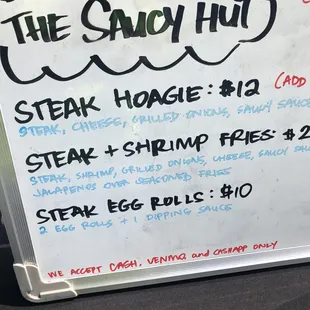 THE SAUCY HUT
STEAK HOAGIE: $12 (ADD
STEAK, CHEESE, GRILLED ONIONS, SAUCY SAUCE
STEAK + SHRIMP FRIES: $2
STEAK, SHRIMP, GRILLED ONIONS, CHEESE, SAUCY SAU
JALAPENOS OVER SEASONED FRIES
STEAK EGG ROLLS: $10
2 EGG ROLLS + 1 DIPPING SAUCE
WE ACCEPT CASH, VENMO and CASHAPP ONLY